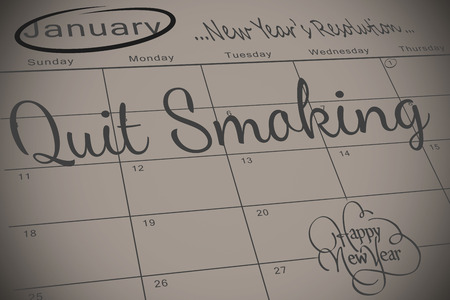 January ...New Year's Resolution...
Sunday Monday Tuesday Wednesday Thursday
1
6
Quit Smoking
11 12 13 14 15
18 19 20
Happy
New Year
25 26 27